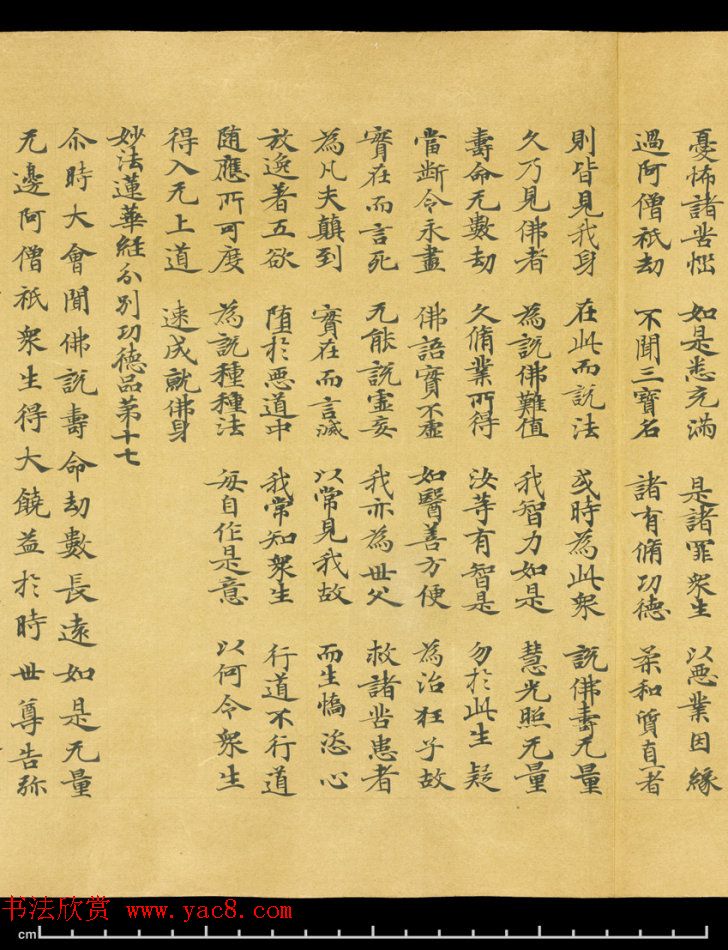 憂怖諸苦惱 如是悉充滿 是諸罪衆生 以惡業因緣
過阿僧祇劫 不聞三寶名 諸有脩功德 柔和質直者
則皆見我身 在此而說法 或時為此衆 說佛壽无量
久乃見佛者 為說佛難值 我智力如是 慧光照无量
壽命无數劫 久脩業所得 汝等有智是 勿於此生疑
當斷令永盡 佛語實不虛 如醫善方便 為治狂子故
實在而言死 无能說虛妄 我亦為世父 救諸苦患者
為凡夫顛到 實在而言滅 以常見我故 而生憍恣心
放逸著五欲 墮於惡道中 我常知衆生 行道不行道
隨應所可度 為說種種法 每自作是意 以何令衆生
得入无上道 速成就佛身
妙法蓮華經分別功德品第十七
尒時大會聞佛說壽命劫數長遠如是无量
无邊阿僧祇衆生得大饒益於時世尊告弥
书法欣赏 www.yac8.com
cm